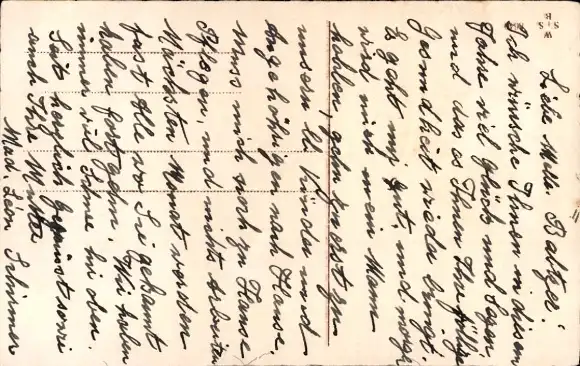 Liebe Mlle. Baltzer!
Ich wünsche Ihnen in diesem
Jahre viel Glück und Segen,
und das es Ihnen Ihre völlige
Gesundheit wieder bringt.
Es geht mir gut, und morgen
wird mich mein Mann
hohlen, gehn zuerst zu
unsern lb. Kinder und
Angehöhrigen nach Hause.
Muss mich noch zu Hause
Pflegen, und nichts Arbeiten
Nächsten Monat werden
fast Alle wo Sie gekannt
haben fortgehn. Wir haben
immer viel Schnee hir oben.
Seid herzlich gegrüsst sowie
auch Ihre Mutter
Mad. Léon Schirmer
W
S+S
B